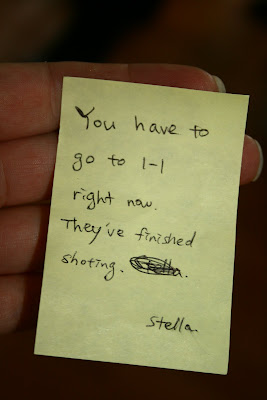 You have to
go to 1-1
right now.
They've finished
shoting. Stella.
Stella.